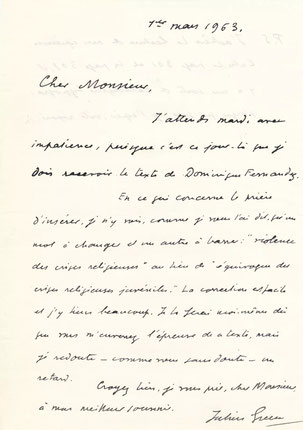 1er mars 1963.
Cher Monsieur,
J'attends mardi avec
impatience, puisque c'est ce jour-là que je
dois recevoir le texte de Dominique Fernandez.
En ce qui concerne le prière
d'insérer, je n'y vois, comme je vous l'ai dit, qu'un
mot à changer et un autre à barrer: "violence
des crises religieuses" au lieu de "équivoque des
crises religieuses juvéniles." La correction est facile
et j'y tiens beaucoup. Je la ferai moi-même dès
que vous m'enverrez l'épreuve de ce texte, mais
je redoute — comme vous sans doute — un
retard.
Croyez bien, je vous prie, cher Monsieur
à mon meilleur souvenir.
Julien Green